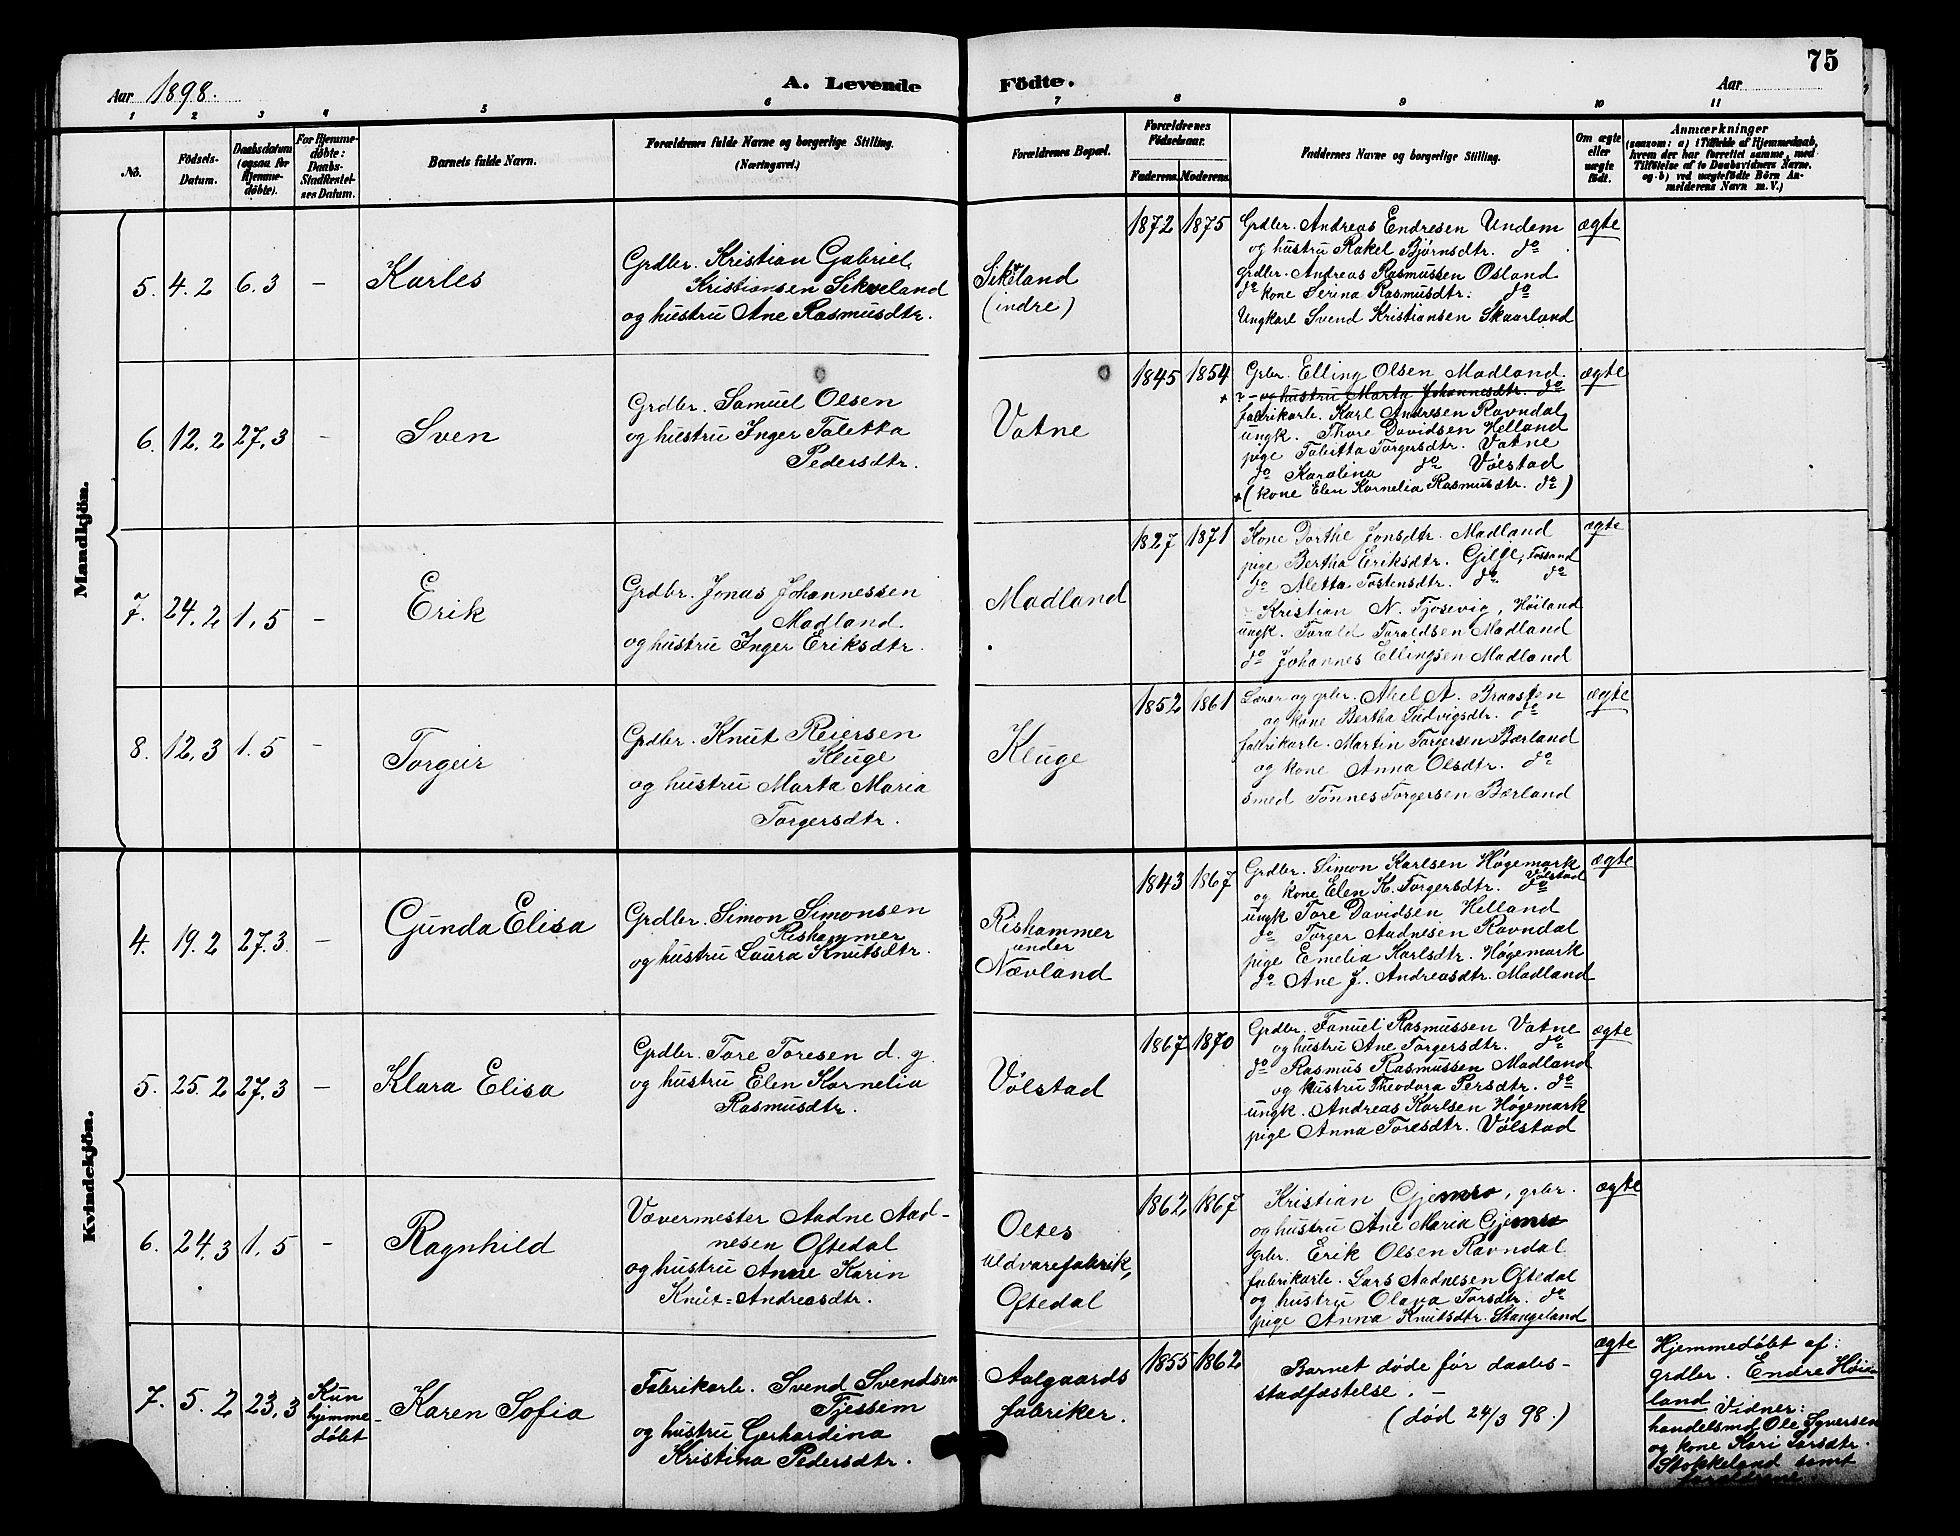 75
Aar 1898.
A. Levende Födte.
Aar
1 2 3 4 5 6 7 8 9 10 11
No.
Födsels-
Datum.
Daabsdatum
(ogsaa for
Hjemme-
döbte).
For Hjemme-
döbte:
Daabs
Stadfæstel-
ses Datum.
Barnets fulde Navn.
Forældrenes fulde Navne og borgerlige Stilling.
(Næringsvei.)
Forældrenes Bopæl.
Forældrenes
Födselsaar.
Faderens. Moderens.
Faddernes Navne og borgerlige Stilling.
Om ægte
eller
uægte
födt.
Anmærkninger
(saasom: a) i Tilfælde af Hjemmedaab,
hvem der har forrettet samme, med
Tilföielse af to Daabsvidners Navne.
og b) ved uægtefödte Börn An-
melderens Navn m. V.)
Mandkjön.
5. 4.2 6.3 – Karles
Grdbr. Kristian Gabriel
Kristiansen Sikveland
og hustru Ane Rasmusdtr.
Sikveland
(indre)
1872 1875
Grdbr. Andreas Endresen Undem
og hustru Rakel Bjørnsdtr. do
Grdbr. Andreas Rasmussen Osland
do kone Serina Rasmusdtr: do
Ungkarl Svend Kristiansen Skaarland
ægte
6. 12.2 27.3 – Sven
Grdbr. Samuel Olsen
og hustru Inger Taletta
Pedersdtr.
Vatne
1845 1854
Grbr. Elling Olsen Madland
+ og hustru Marta Johannesdtr. do
fabrikarb. Karl Andresen Ravndal
ungk. Thore Davidsen Helland
pige Talitta Torgersdtr. Vatne
do Karolina do Vølstad
+ (kone Elen Kornelia Rasmusdtr. do)
ægte
7. 24.2 1.5 – Erik
Grdbr. Jonas Johannessen
Madland
og hustru Inger Eriksdtr.
Madland
1827 1871
Kone Dorthe Jonsdtr. Madland
pige Bertha Eriksdtr. Gilje, Fossand
do Aletta Tostensdtr. do do
Kristian N. Tjosevig, Høiland
ungk. Torald Toraldsen Madland
do Johannes Ellingsen Madland
ægte
8. 12.3 1.5 – Torgeir
Grdbr. Knut Reiersen
Kluge
og hustru Marta Maria
Torgersdtr.
Kluge
1852 1861
Lærer og grbr. Abel A. Braasten
og kone Bertha Ludvigsdtr. do
fabrikarb. Martin Torgersen Bærland
og kone Anna Olsdtr. do
smed Tønnes Torgersen Bærland
ægte
Kvindekjön.
4. 19.2 27.3 – Gunda Elisa
Grdbr. Simon Simonsen
Rishammer
og hustru Laura Knutsdtr.
Rishammer
under
Nævland
1843 1867
Grdbr. Simon Karlsen Høgemark
og kone Elen K. Torgersdtr. do Vølstad
ungk Tore Davidsen Helland
do Torger Aadnesen Ravndal
pige Emelia Karlsdtr. Høgemark
do Ane J. Andreasdtr. Madland
ægte
5. 25.2 27.3 – Klara Elisa
Grdbr. Tore Toresen d. y.
og hustru Elen Kornelia
Rasmusdtr.
Vølstad
1867 1870
Grdbr. Fanuel Rasmussen Vatne
og hustru Ane Torgersdtr. do
do Rasmus Rasmussen Madland
og hustru Theodora Persdtr. do
ungk. Andreas Karlsen Høgemark
pige Anna Toresdtr. Vølstad
ægte
6. 24.3 1.5 – Ragnhild
Vævermester Aadne Aad-
nesen Oftedal
og hustru Anne Karin
Knut-Andreasdtr.
Oltes
uldvarefabrik,
Oftedal
1862 1867
Kristian Gjemre, grbr.
og hustru Ane Maria Gjemre
grbr. Erik Olsen Ravndal
fabrikarb. Lars Aadnesen Oftedal
og hustru Olava Torsdtr. do
pige Anna Knutsdtr. Stangeland
ægte
7. 5.2 23.3
Kun
hjemme-
døbt
Karen Sofia
Fabrikarb. Svend Svendsen
Tjessem
og hustru Gerhardina
Kristina Pedersdtr.
Aalgaards
fabriker.
1855 1862
Barnet døde før daabs-
stadfæstelse. –
(død 24/3 98.)
ægte
Hjemmedøbt af:
grdbr. Endre Høie-
land Vidner:
handelsmd Ole Syversen
og kone Kari Larsdtr.
Stokkeland samt
forældrene.